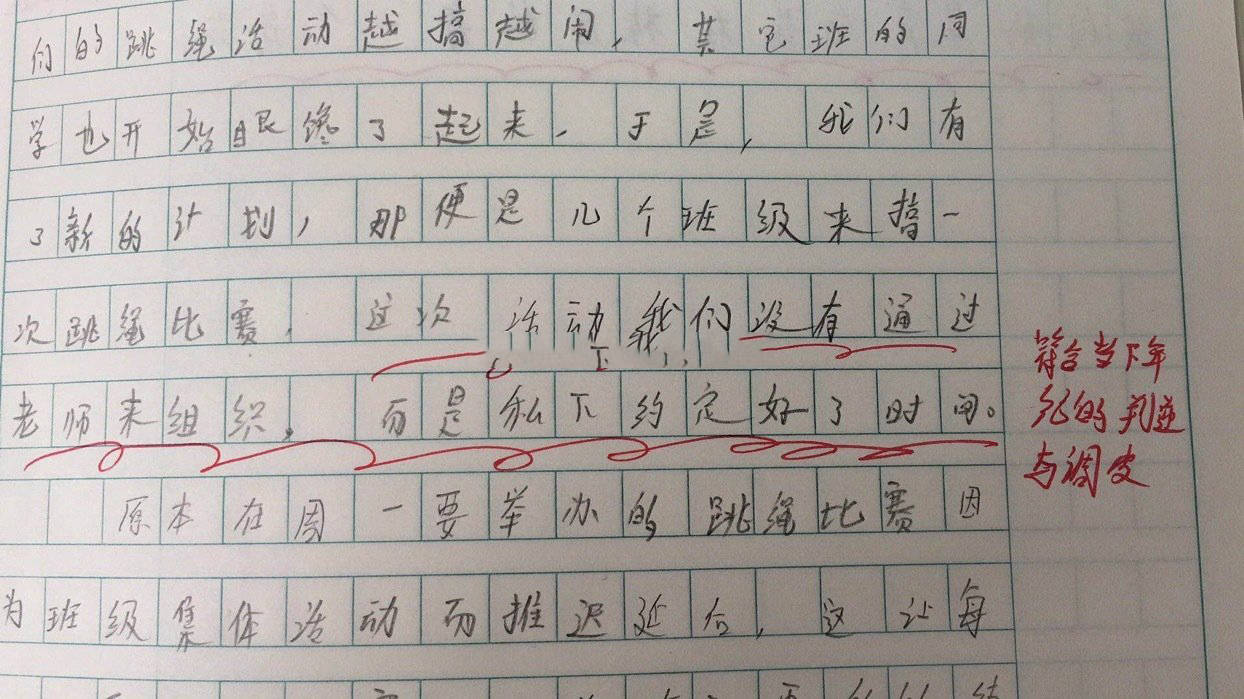 们的跳绳活动越搞越闹，其它班的同
学也开始眼馋了起来。于是，我们有
了新的计划，那便是几个班级来搞一
次跳绳比赛。这次活动我们没有通过
老师来组织，而是私下约定好了时间。
原本在周一要举办的跳绳比赛因
为班级集体活动而推迟延后，这让每
符合当下年
纪的判逆
与调皮